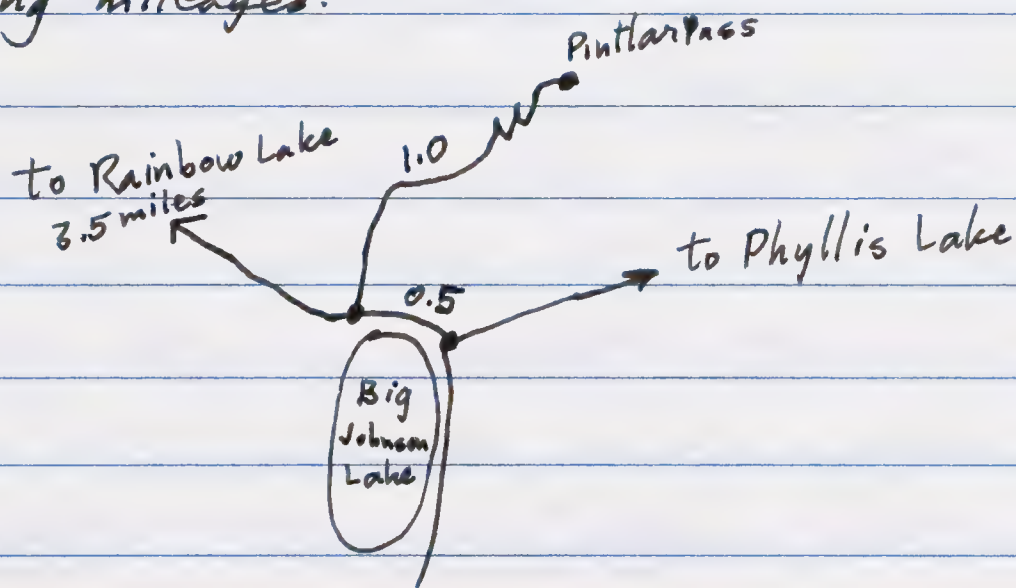 ng mileages.
Pintlar Pass
to Rainbow Lake
3.5 miles
1.0
to Phyllis Lake
0.5
Big
Johnson
Lake